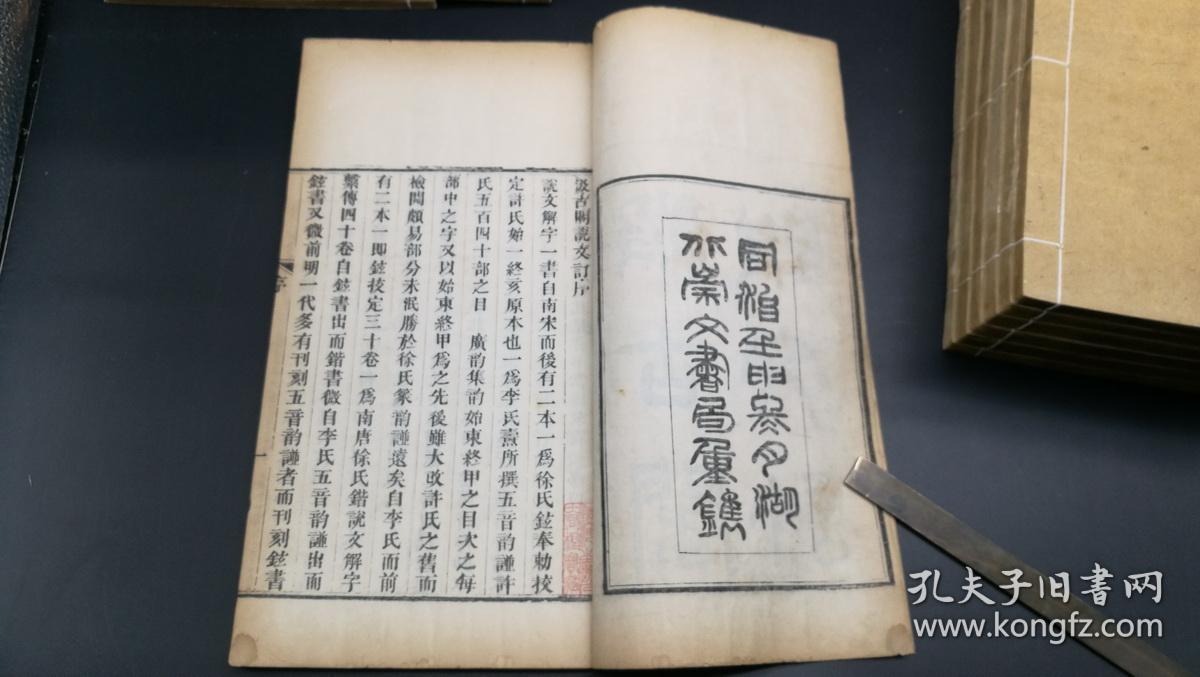 同治壬申冬月湖
北崇文書局重鐫
汲古閣說文訂序
說文解字一書自南宋而後有二本一爲徐氏鉉奉勅挍
定許氏始一終亥原本也一爲李氏燾所撰五音韵譜許
氏五百四十部之目　廣韵集韵始東終甲之目次之每
部中之字又以始東終甲爲之先後雖大改許氏之舊而
檢閱頗易部分未泯勝於徐氏篆韵譜遠矣自李氏而前
有二本一即鉉挍定三十卷一爲南唐徐氏鍇說文解字
繫傳四十卷自鉉書出而鍇書微自李氏五音韵譜出而
鉉書又微前明一代多有刊刻五音韵譜者而刊刻鉉書
序
一
孔夫子旧书网
www.kongfz.com